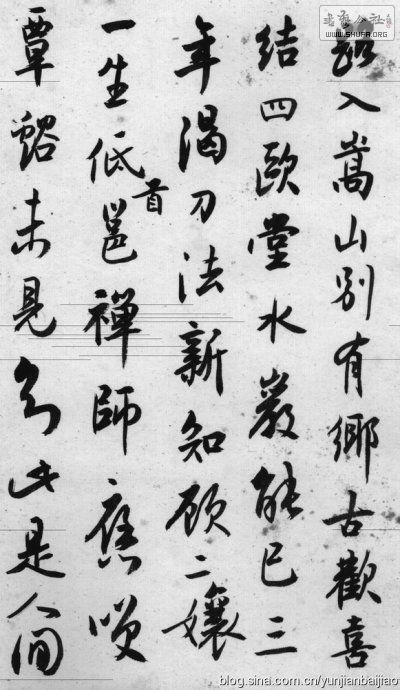 入嵩山別有鄉古歡喜
結四歐堂水巖能已三
年渴刀法新知顧二孃
一生低首邕禪師應咲
覃谿未見此是人間
书艺公社
WWW.SHUFA.ORG
blog.sina.com.cn/yunjianbaijiao